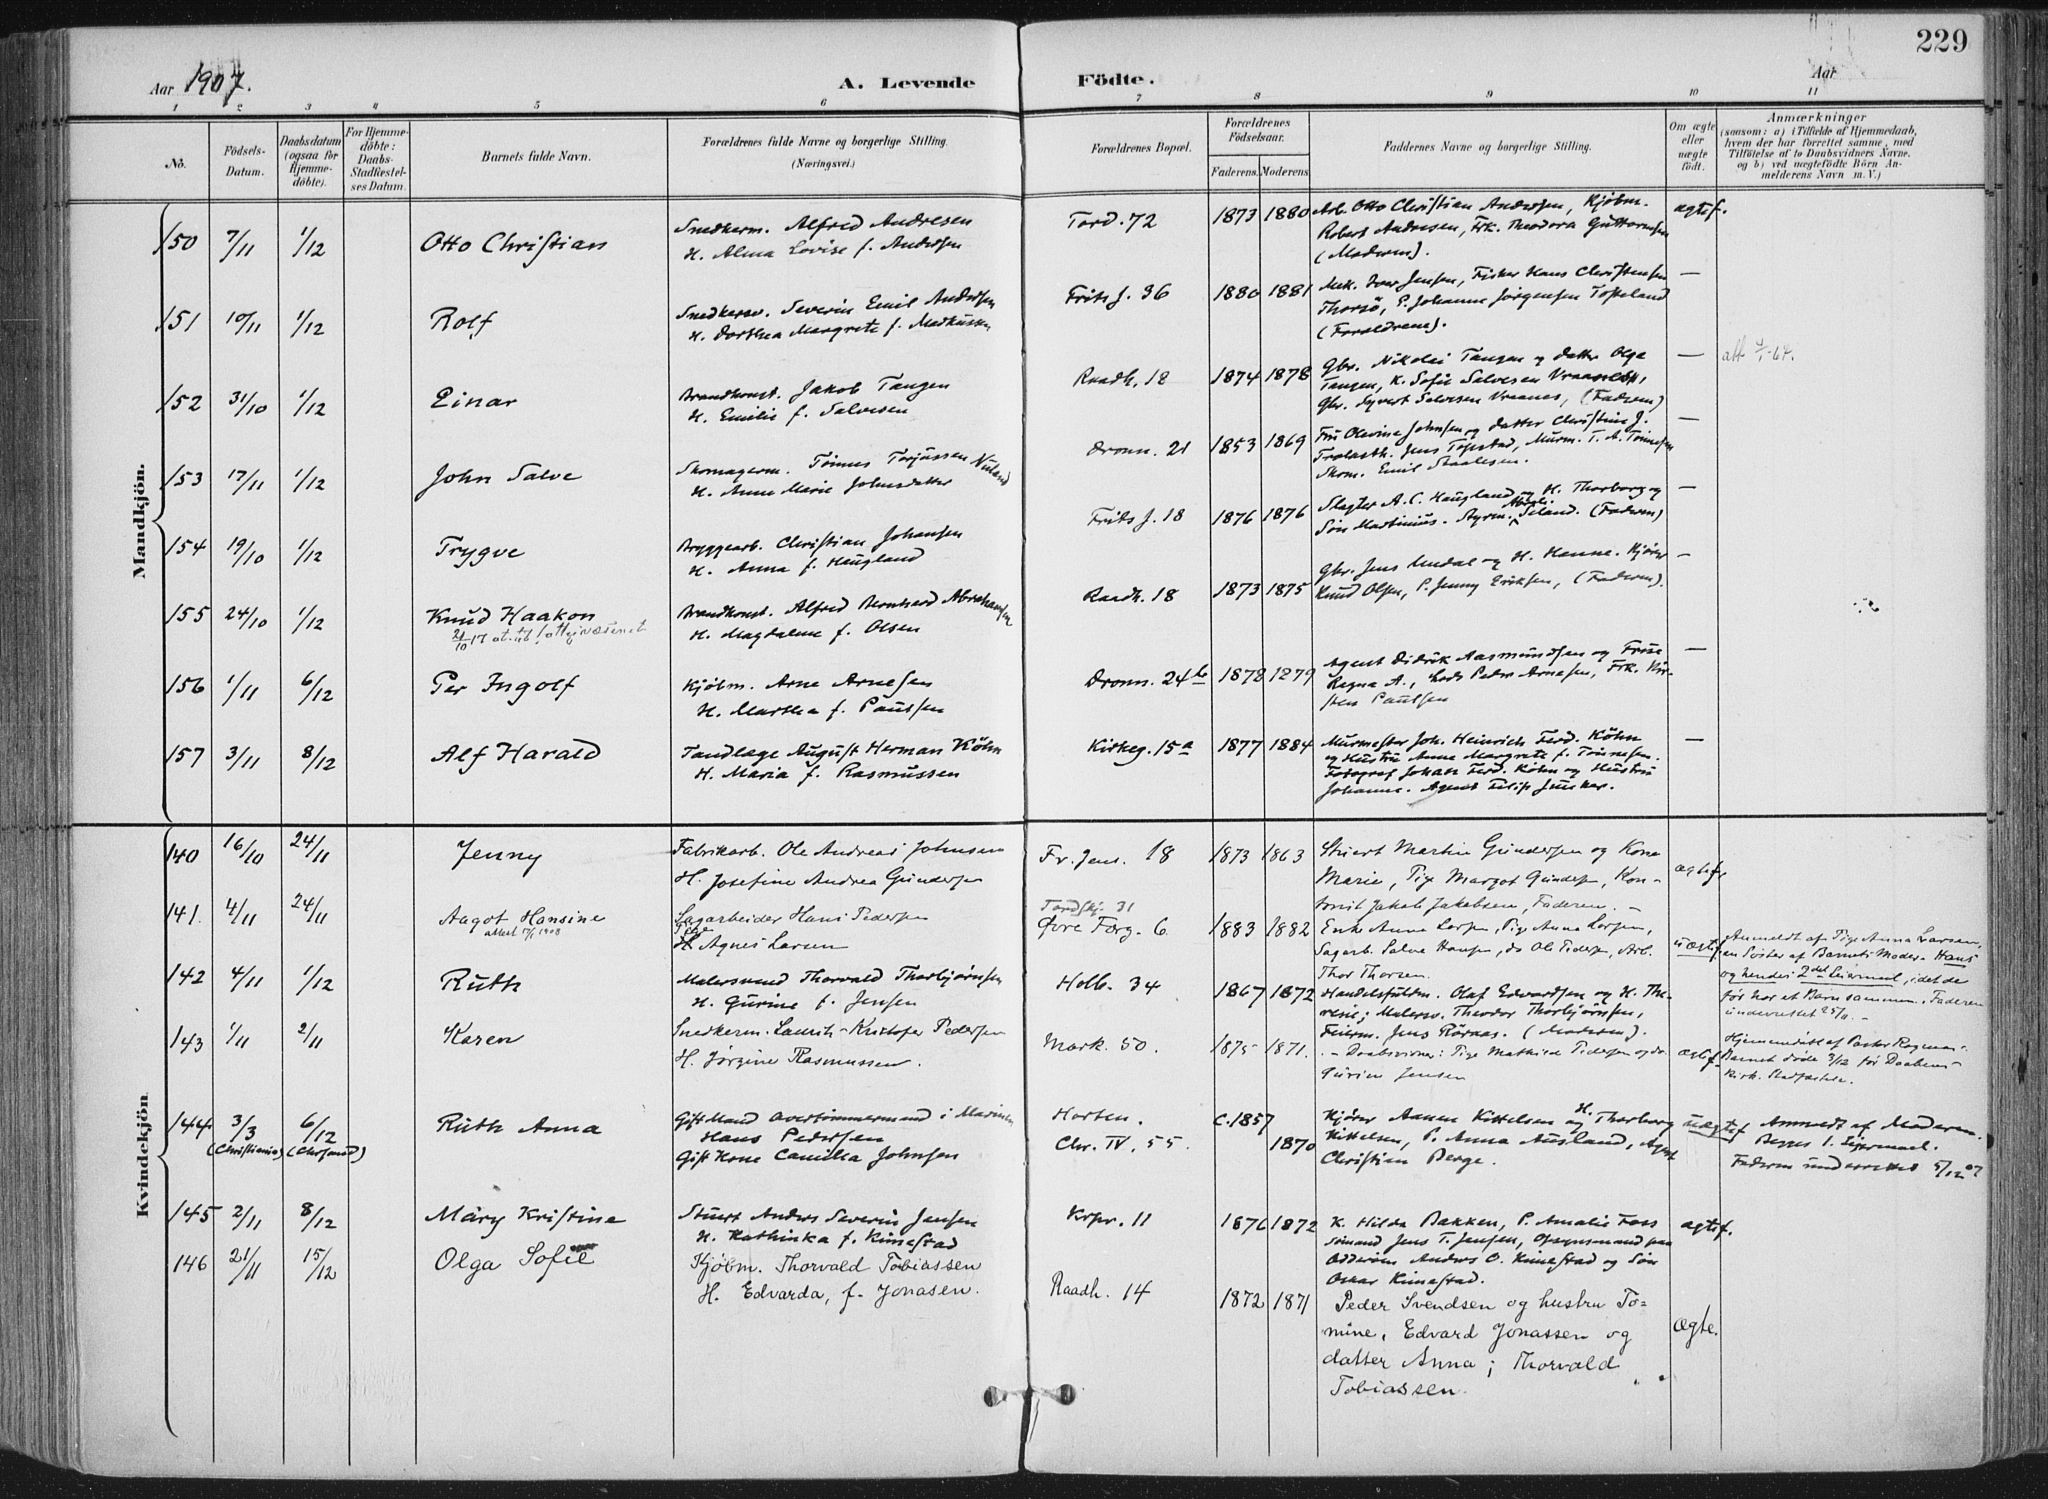 229
Aar 1907. A. Levende Födte. Aar
1 2 3 4 5 6 7 8 9 10 11
No. Födsels-Datum. Daabsdatum (ogsaa för Hjemme-döbte). For Hjemme-döbte: Daabs-Stadfæstel-ses Datum. Barnets fulde Navn. Forældrenes fulde Navne og borgerlige Stilling. (Næringsvei.) Forældrenes Bopæl. Forældrenes Födselsaar. Faderens. Moderens. Faddernes Navne og borgerlige Stilling. Om ægte eller uægte födt. Anmærkninger (saasom: a) i Tilfælde af Hjemmedaab, hvem der har forrettet samme, med Tilföielse af to Daabsvidners Navne, og b) ved uægtefödte Börn An-melderens Navn m. V.)
Mandkjön.
150 7/11 1/12 Otto Christian
Snedkerm. Alfred Andresen
H. Alma Lovise f. Andersen
Tord. 72 1873 1880
Arb. Otto Christian Andersen, Kjøbm.
Robert Andresen, Frk. Theodora Guttormsen
(Moderen).
ægtef.
151 10/11 1/12 Rolf
Snedkersv. Severin Emil Andersen
H. Dorthea Margrete f. Markussen
Frits J. 36 1880 1881
Mek. Iver Jensen, Fisker Hans Christensen
Thorsø, P. Johanne Jørgensen Topeland
(Forældrene).
—
152 31/10 1/12 Einar
Brandkonst. Jakob Tangen
H. Emilie f. Salvesen
Raadh. 18 1874 1878
Gbr. Nikolai Tangen og datter Olga
Tangen, K. Sofie Salvesen
Gbr. Syvert Salvesen Vraanes, (Faderen)
—
153 17/11 1/12 John Salve
Skomagerm. Tønnes Torjussen Nuland
H. Anne Marie Johnsdatter
Dronn. 21 1853 1869
Fru Olevine Johnsen og datter Christine J.
Jens Topstad, Murm. T. A. Tønnesen
Skom. Emil Staalesen.
—
154 19/10 1/12 Trygve
Bryggearb. Christian Johansen
H. Anna f. Haugland
Frits J. 18 1876 1876
Slagter A. C. Haugland og H. Thorborg og
Søn Martinius. Seland. (Faderen)
—
155 24/10 1/12 Knud Haakon
Brandkonst. Alfred Bernhard Abrahamsen
H. Magdalene f. Olsen
Raadh. 18 1873 1875
Gbr. Jens Undal og H. Hanne. Kjører
Knud Olsen, P. Jenny Eriksen, (Faderen).
—
156 1/11 6/12 Per Ingolf
Kjøbm. Arne Arnesen
H. Martha f. Paulsen
Dronn. 24b 1878 1879
Agent Didrik Aasmundsen og Frue
Regna A., Lods Peder Arnesen, Frk. Kir-
sten Paulsen
—
157 3/11 8/12 Alf Harald
Tandlæge August Herman Köhn
H. Maria f. Rasmussen
Kirkeg. 15a 1877 1884
Murmester Joh. Heinrich Ferd. Köhn
og Hustru Anne Margrete f. Tønnesen.
Fotograf Johan Ferd. Köhn og Hustru
Johanne. Agent Filip Junker.
—
Kvindekjön
140 16/10 24/11 Jenny
Fabrikarb. Ole Andreas Johnsen
H. Josefine Andrea Gundersen
Fr. Jens. 18 1873 1863
Stuert Martin Gundersen og Kone
Marie, Pige Margot Gundersen, Kon-
torist Jakob Jakobsen, Faderen. —
ægtef.
141. 4/11 24/11 Aagot Hansine
attest 17/1 1908
Sagarbeider Hans Pedersen
Pige
H. Agnes Larsen
Tordskj. 31
Øvre Færg. 6 1883 1882
Enke Anne Larsen, Pige Anna Larsen,
Sagarb. Salve Hansen, do Ole Pedersen, Arb.
Thor Thorsen.
uægtef.
Anmeldt af Pige Anna Larsen,
en Søster af Barnets Moder. Hans
og hendes 2det Leiermaal, idet de
før har et Barn sammen. Faderen
underrettet 25/11. —
142 4/11 1/12 Ruth
Malersvend Thorvald Thorbjørnsen
H. Gurine f. Jensen
Holb. 34 1867 1872
Handelsfuldm. Olaf Edvardsen og H. The-
resie; Malersv. Theodor Thorbjørnsen,
Feierm. Jens Röraas. (Moderen).
143 1/11 2/11 Karen
Snedkerm. Laurits Kristofer Pedersen
H. Jørgine Rasmussen.
Mark. 50. 1875 1871.
— Daabsvidner: Pige Mathilde Pedersen og do
Gurine Jensen
ægtef.
Hjemmedøbt af Pastor
Barnet døde 3/12 før Daabens
kirk. Stadfæstelse.
144 3/3 6/12 Ruth Anna
(Christiania) (Chrsand)
Gift Mand Overtømmermand i Marinen
Hans Pedersen
Gift Kone Camilla Johnsen
Horten.
Chr. IV, 55. c. 1857 1870
Kjører Aanen Kittelsen og H. Thorborg
Kittelsen, P. Anna Ausland, Agent
Christian Berge.
uægtef
Anmeldt af Moderen.
Begges 1. Leiermaal.
Faderen underrettet 5/12 07
145 2/11 8/12 Mary Kristine
Stuert Anders Severin Jensen
H. Kathinka f. Kunestad
Krpr. 11 1876 1872
K. Hilda Bakken, P. Amalie Foss
Sömand Jens T. Jensen, Opsynsmand paa
Odderöen Anders O. Kunestad og Søn
Oskar Kunestad.
ægtef.
146 21/11 15/12 Olga Sofie
Kjøbm. Thorvald Tobiassen
H. Edvarda, f. Jonasen.
Raadh. 14 1872 1871
Peder Svendsen og hustru To-
mine, Edvard Jonassen og
datter Anna; Thorvald
Tobiassen.
ægte.